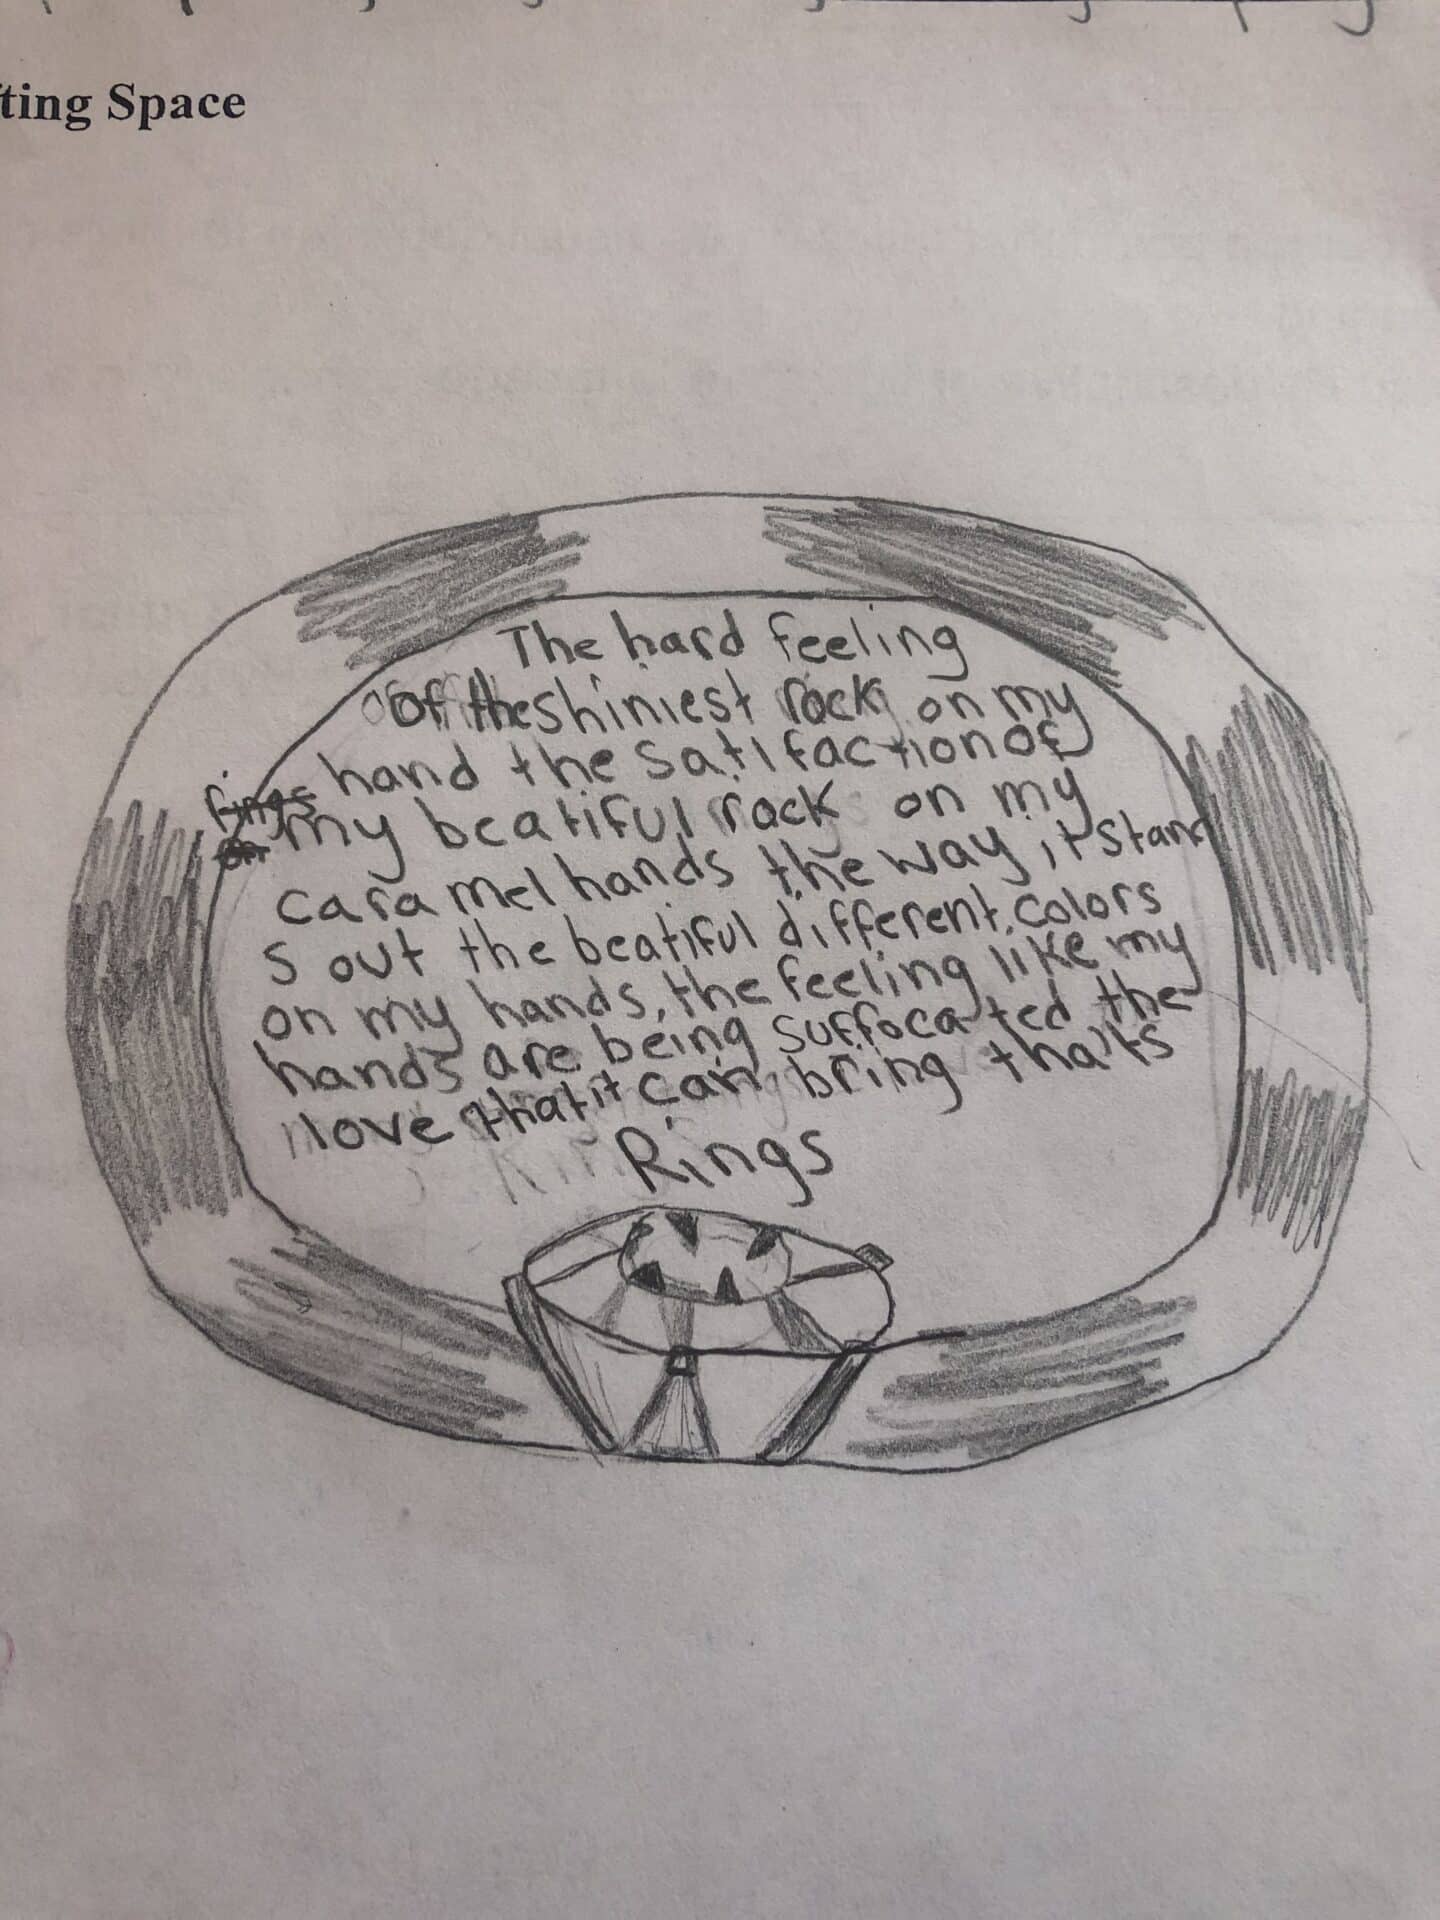 ting Space
The hard feeling
of the shiniest rock on my
hand the satifaction of
my beatiful rock on my
caramel hands the way it stand
s out the beatiful different colors
on my hands, the feeling like my
hands are being suffocated the
love that it can bring thats
Rings